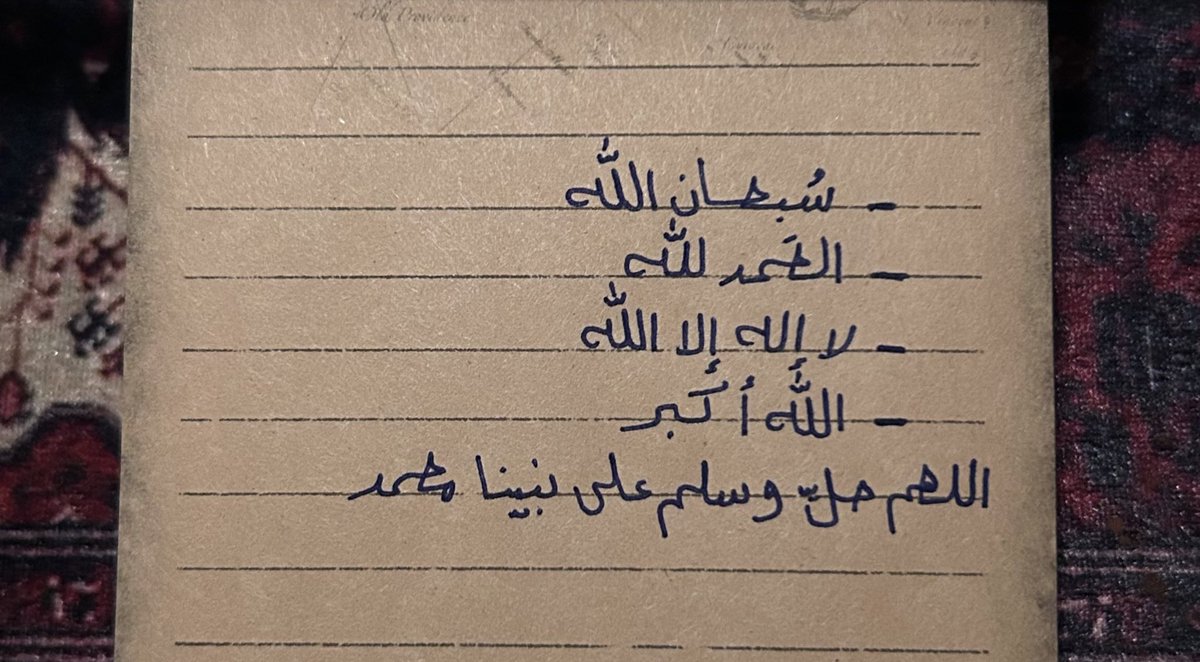 Old Providence
- سُبحان اللّٰه
- الحَمد للّٰه
- لا إله إلا اللّٰه
- اللّٰه أكبر
اللهم صلِّ وسلم على نبينا محمد